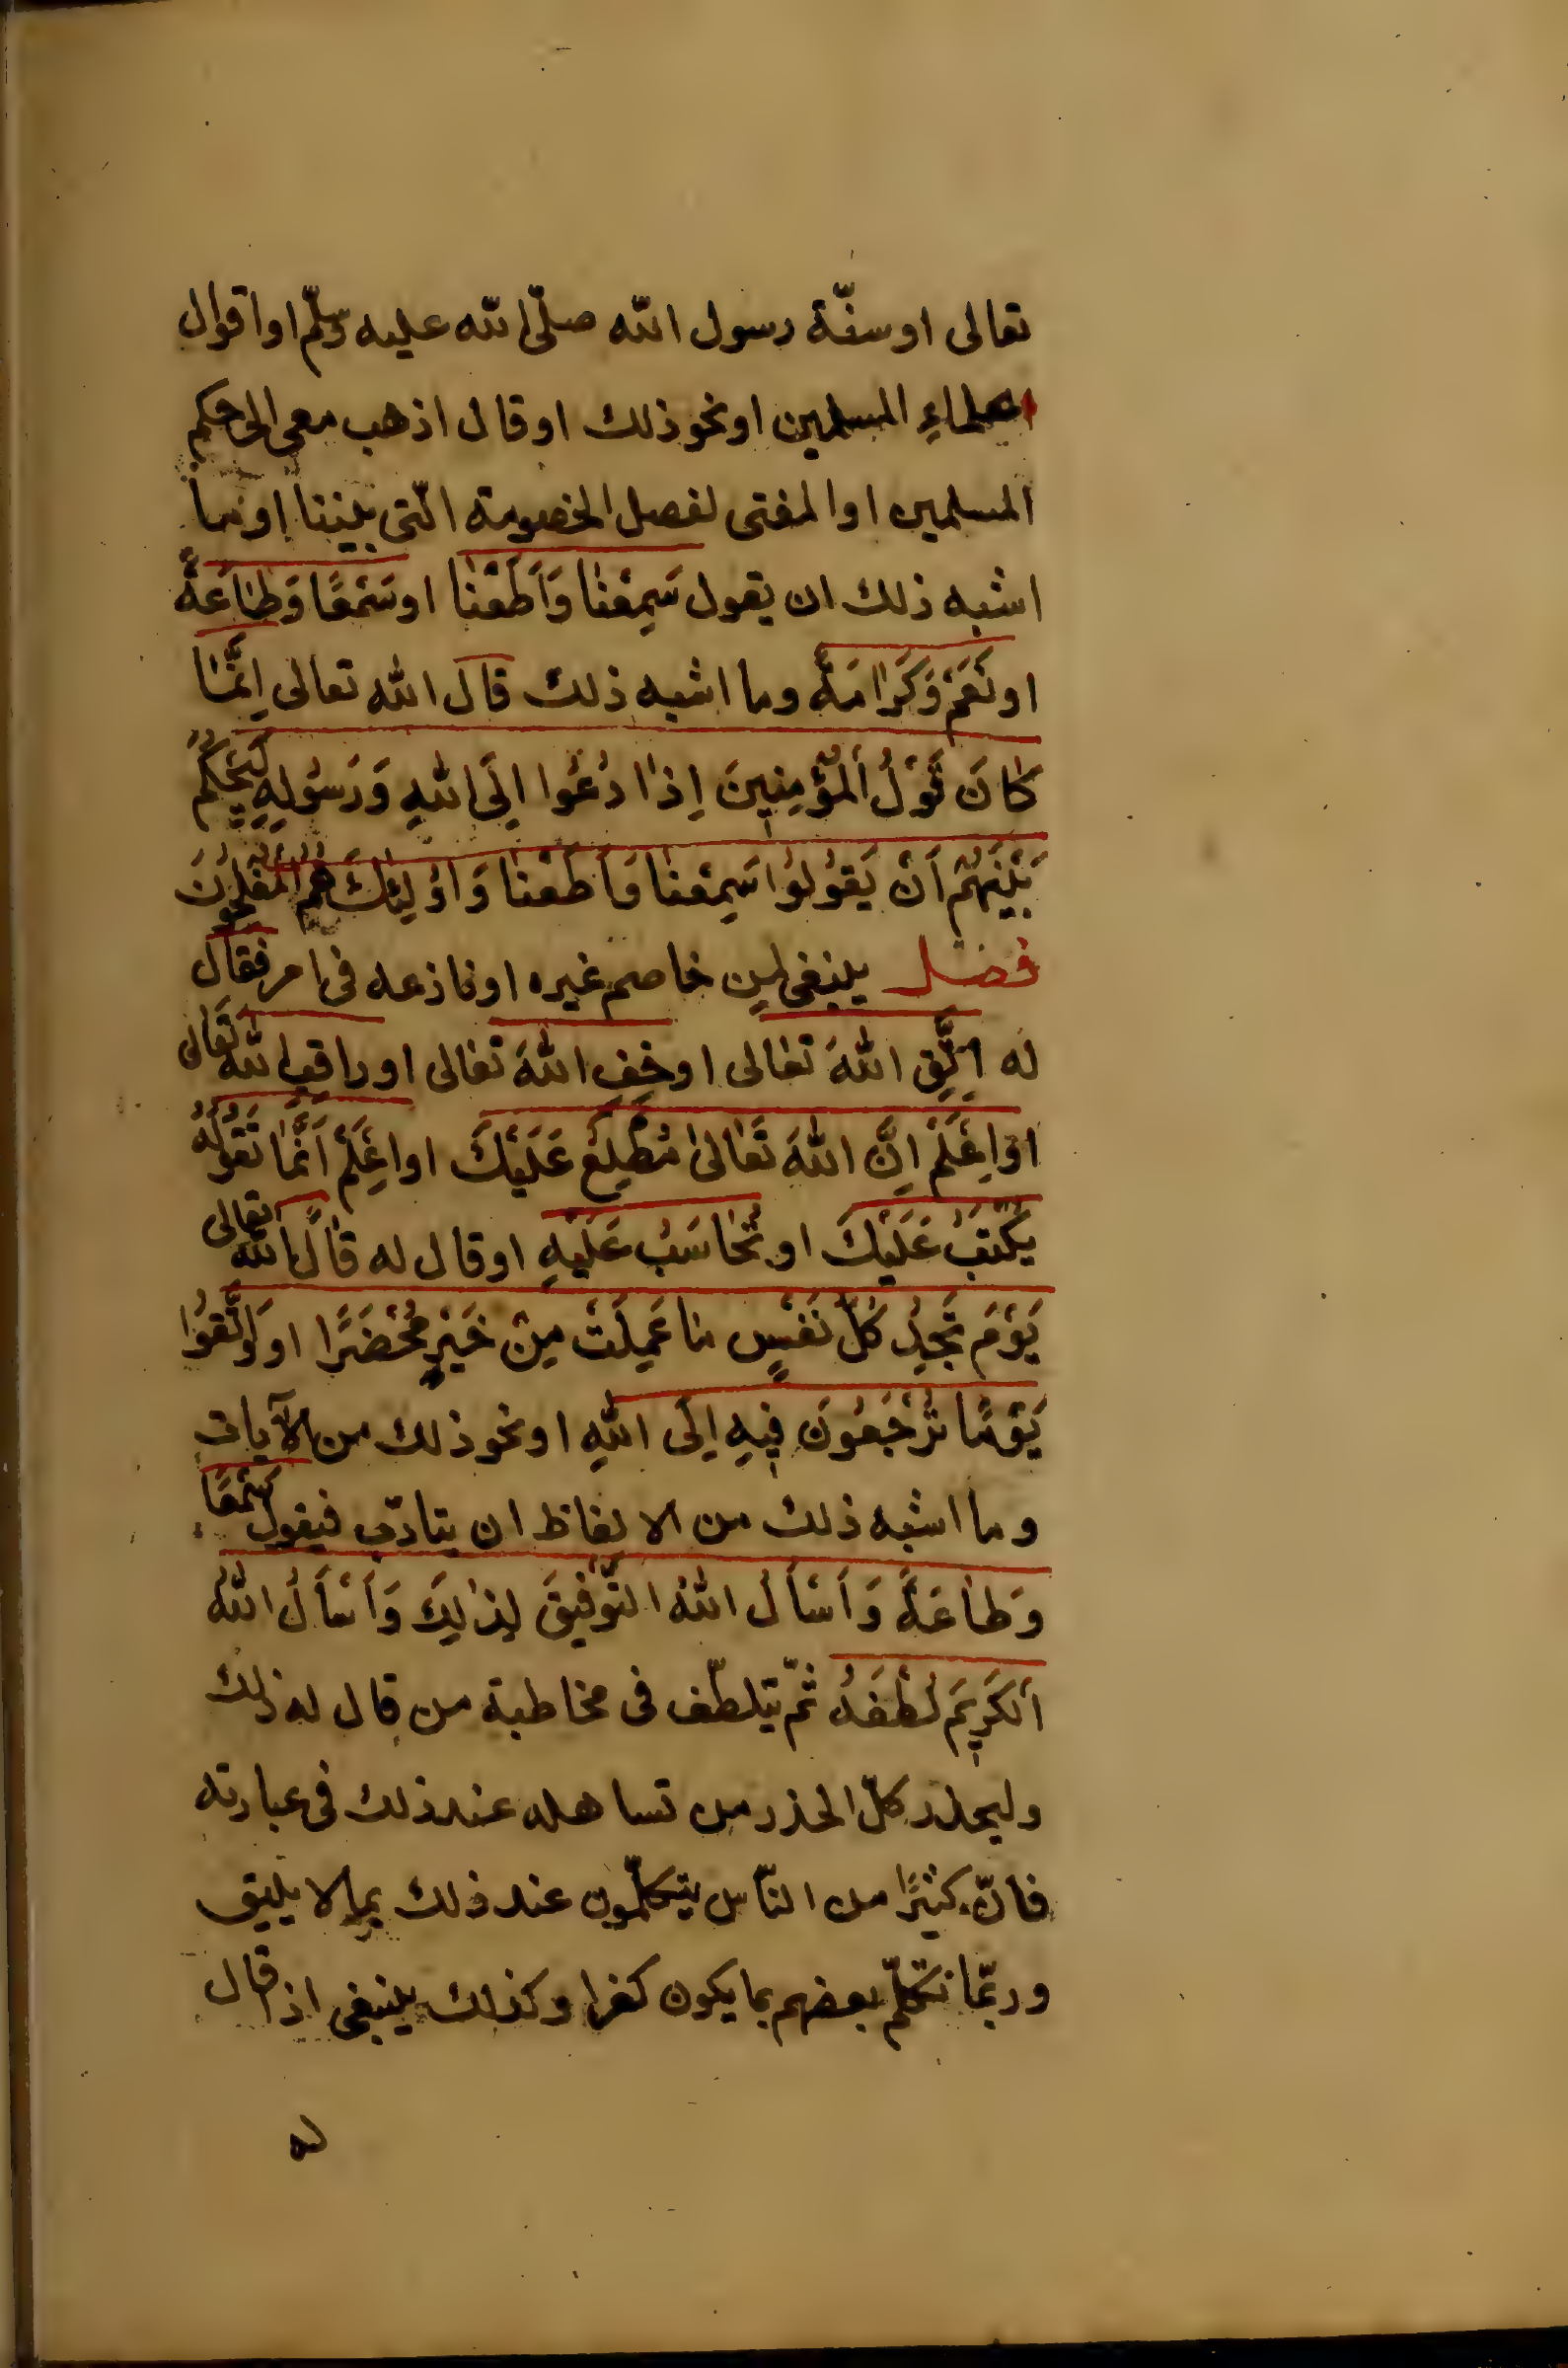 تعالى او سنّة رسول الله صلّى الله عليه وسلّم او اقوال
علماءِ المسلمين او نحو ذلك او قال اذهب معى الى حكم
المسلمين او المفتى لفصل الخصومة الّتى بيننا او ما
اشبه ذلك ان يقول سَمِعْنَا وَاَطَعْنَا او سَمْعًا وَطَاعَةً
او نَعَمْ وَكَرَامَةً وما اشبه ذلك قال الله تعالى اِنَّمَا
كَانَ قَوْلُ الْمُؤْمِنِينَ اِذَا دُعُوا اِلَى اللهِ وَرَسُولِهِ لِيَحْكُمَ
بَيْنَهُمْ اَنْ يَقُولُوا سَمِعْنَا وَاَطَعْنَا وَاُولٰئِكَ هُمُ الْمُفْلِحُونَ
فصل ينبغى لمن خاصم غيره او نازعه فى امر فقال
له اِتَّقِ اللهَ تعالى او خَفِ اللهَ تعالى او راقِبِ اللهَ تَعَالى
اَوْ اِعْلَمْ اِنَّ اللهَ تَعَالىٰ مُطَّلِعٌ عَلَيْكَ او اِعْلَمْ اَنَّمَا تَقُولُهُ
يُكْتَبُ عَلَيْكَ او تُحَاسَبُ عَلَيْهِ او قال له قَالَ اللهُ تعالى
يَوْمَ تَجِدُ كُلُّ نَفْسٍ مَا عَمِلَتْ مِنْ خَيْرٍ مُحْضَرًا او وَاتَّقُوا
يَوْمًا تُرْجَعُونَ فِيهِ اِلَى اللهِ او نحو ذلك من الآيات
وما اشبه ذلك من الالفاظ ان يتادّب فيقول سَمْعًا
وَطَاعَةً وَاَسْاَلُ اللهَ التَّوْفِيقَ لِذٰلِكَ وَاَسْاَلُ اللهَ
اَلْكَرِيمَ لُطْفَهُ ثمّ يتلطّف فى مخاطبة من قال له ذلك
وليحذر كلّ الحذر من تساهله عند ذلك فى عبارته
فانّ كثيرًا من النّاس يتكلّمون عند ذلك بما لا يليق
وربّما تكلّم بعضهم بما يكون كفرا وكذلك ينبغى اذا قال
له